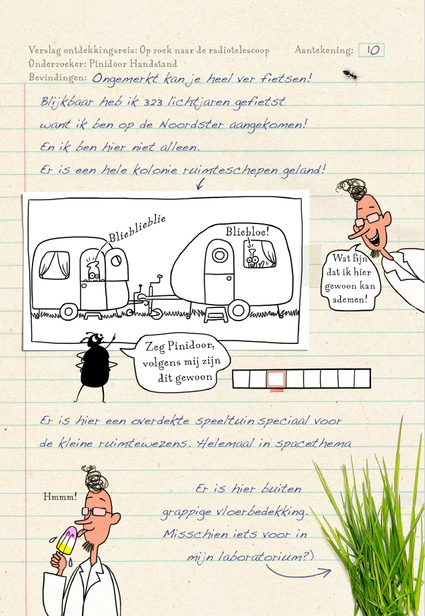 Verslag ontdekkingsreis: Op zoek naar de radiotelescoop Aantekening: 10
Onderzoeker: Pinidoor Handstand
Bevindingen: Ongemerkt kan je heel ver fietsen!
Blijkbaar heb ik 323 lichtjaren gefietst
want ik ben op de Noordster aangekomen!
En ik ben hier niet alleen.
Er is een hele kolonie ruimteschepen geland!
Blieblieblie
Bliebloe!
Wat fijn
dat ik hier
gewoon kan
ademen!
Zeg Pinidoor,
volgens mij zijn
dit gewoon
Er is hier een overdekte speeltuin speciaal voor
de kleine ruimtewezens. Helemaal in spacethema
Hmmm!
Er is hier buiten
grappige vloerbedekking.
Misschien iets voor in
mijn laboratorium?)